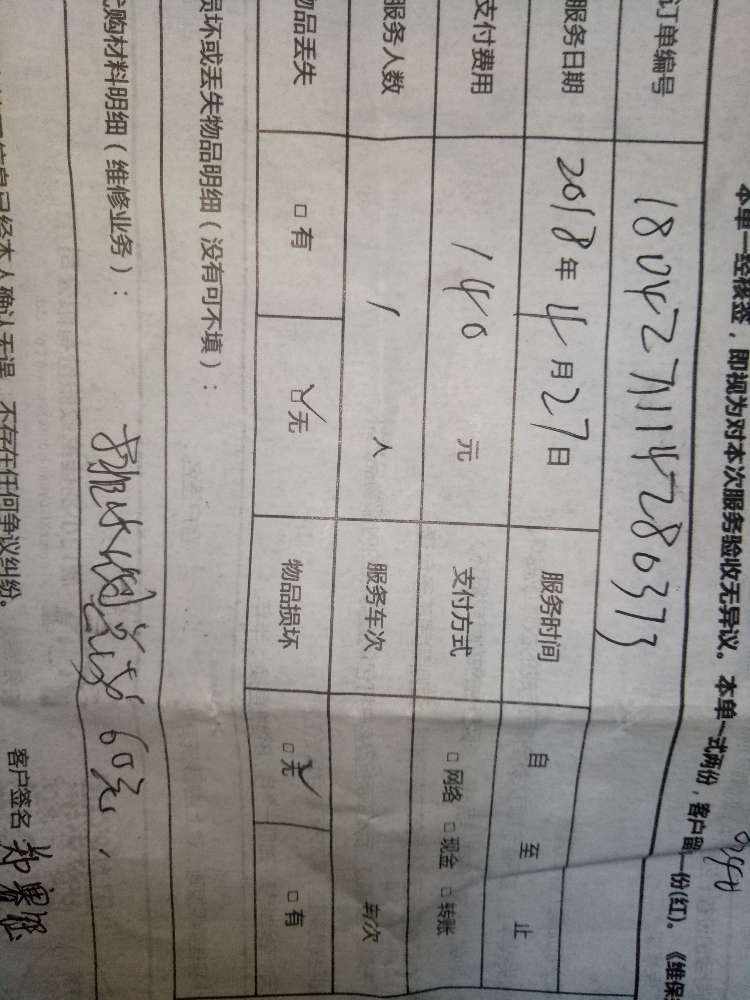 本单一经核签，即视为对本次服务验收无异议。本单一式两份，客户留一份(红)。《维保
订单编号 180427114280373
服务日期 2018年4月27日 服务时间 自 至 止
支付费用 140 元 支付方式 □ 网络 □ 现金 □ 转账
服务人数 1 人 服务车次 车/次
物品丢失 □ 有 ☑ 无 物品损坏 ☑ 无 □ 有
损坏或丢失物品明细（没有可不填）：
代购材料明细（维修业务）： 水 60元
信息已经本人确认无误，不存在任何争议纠纷。
客户签名